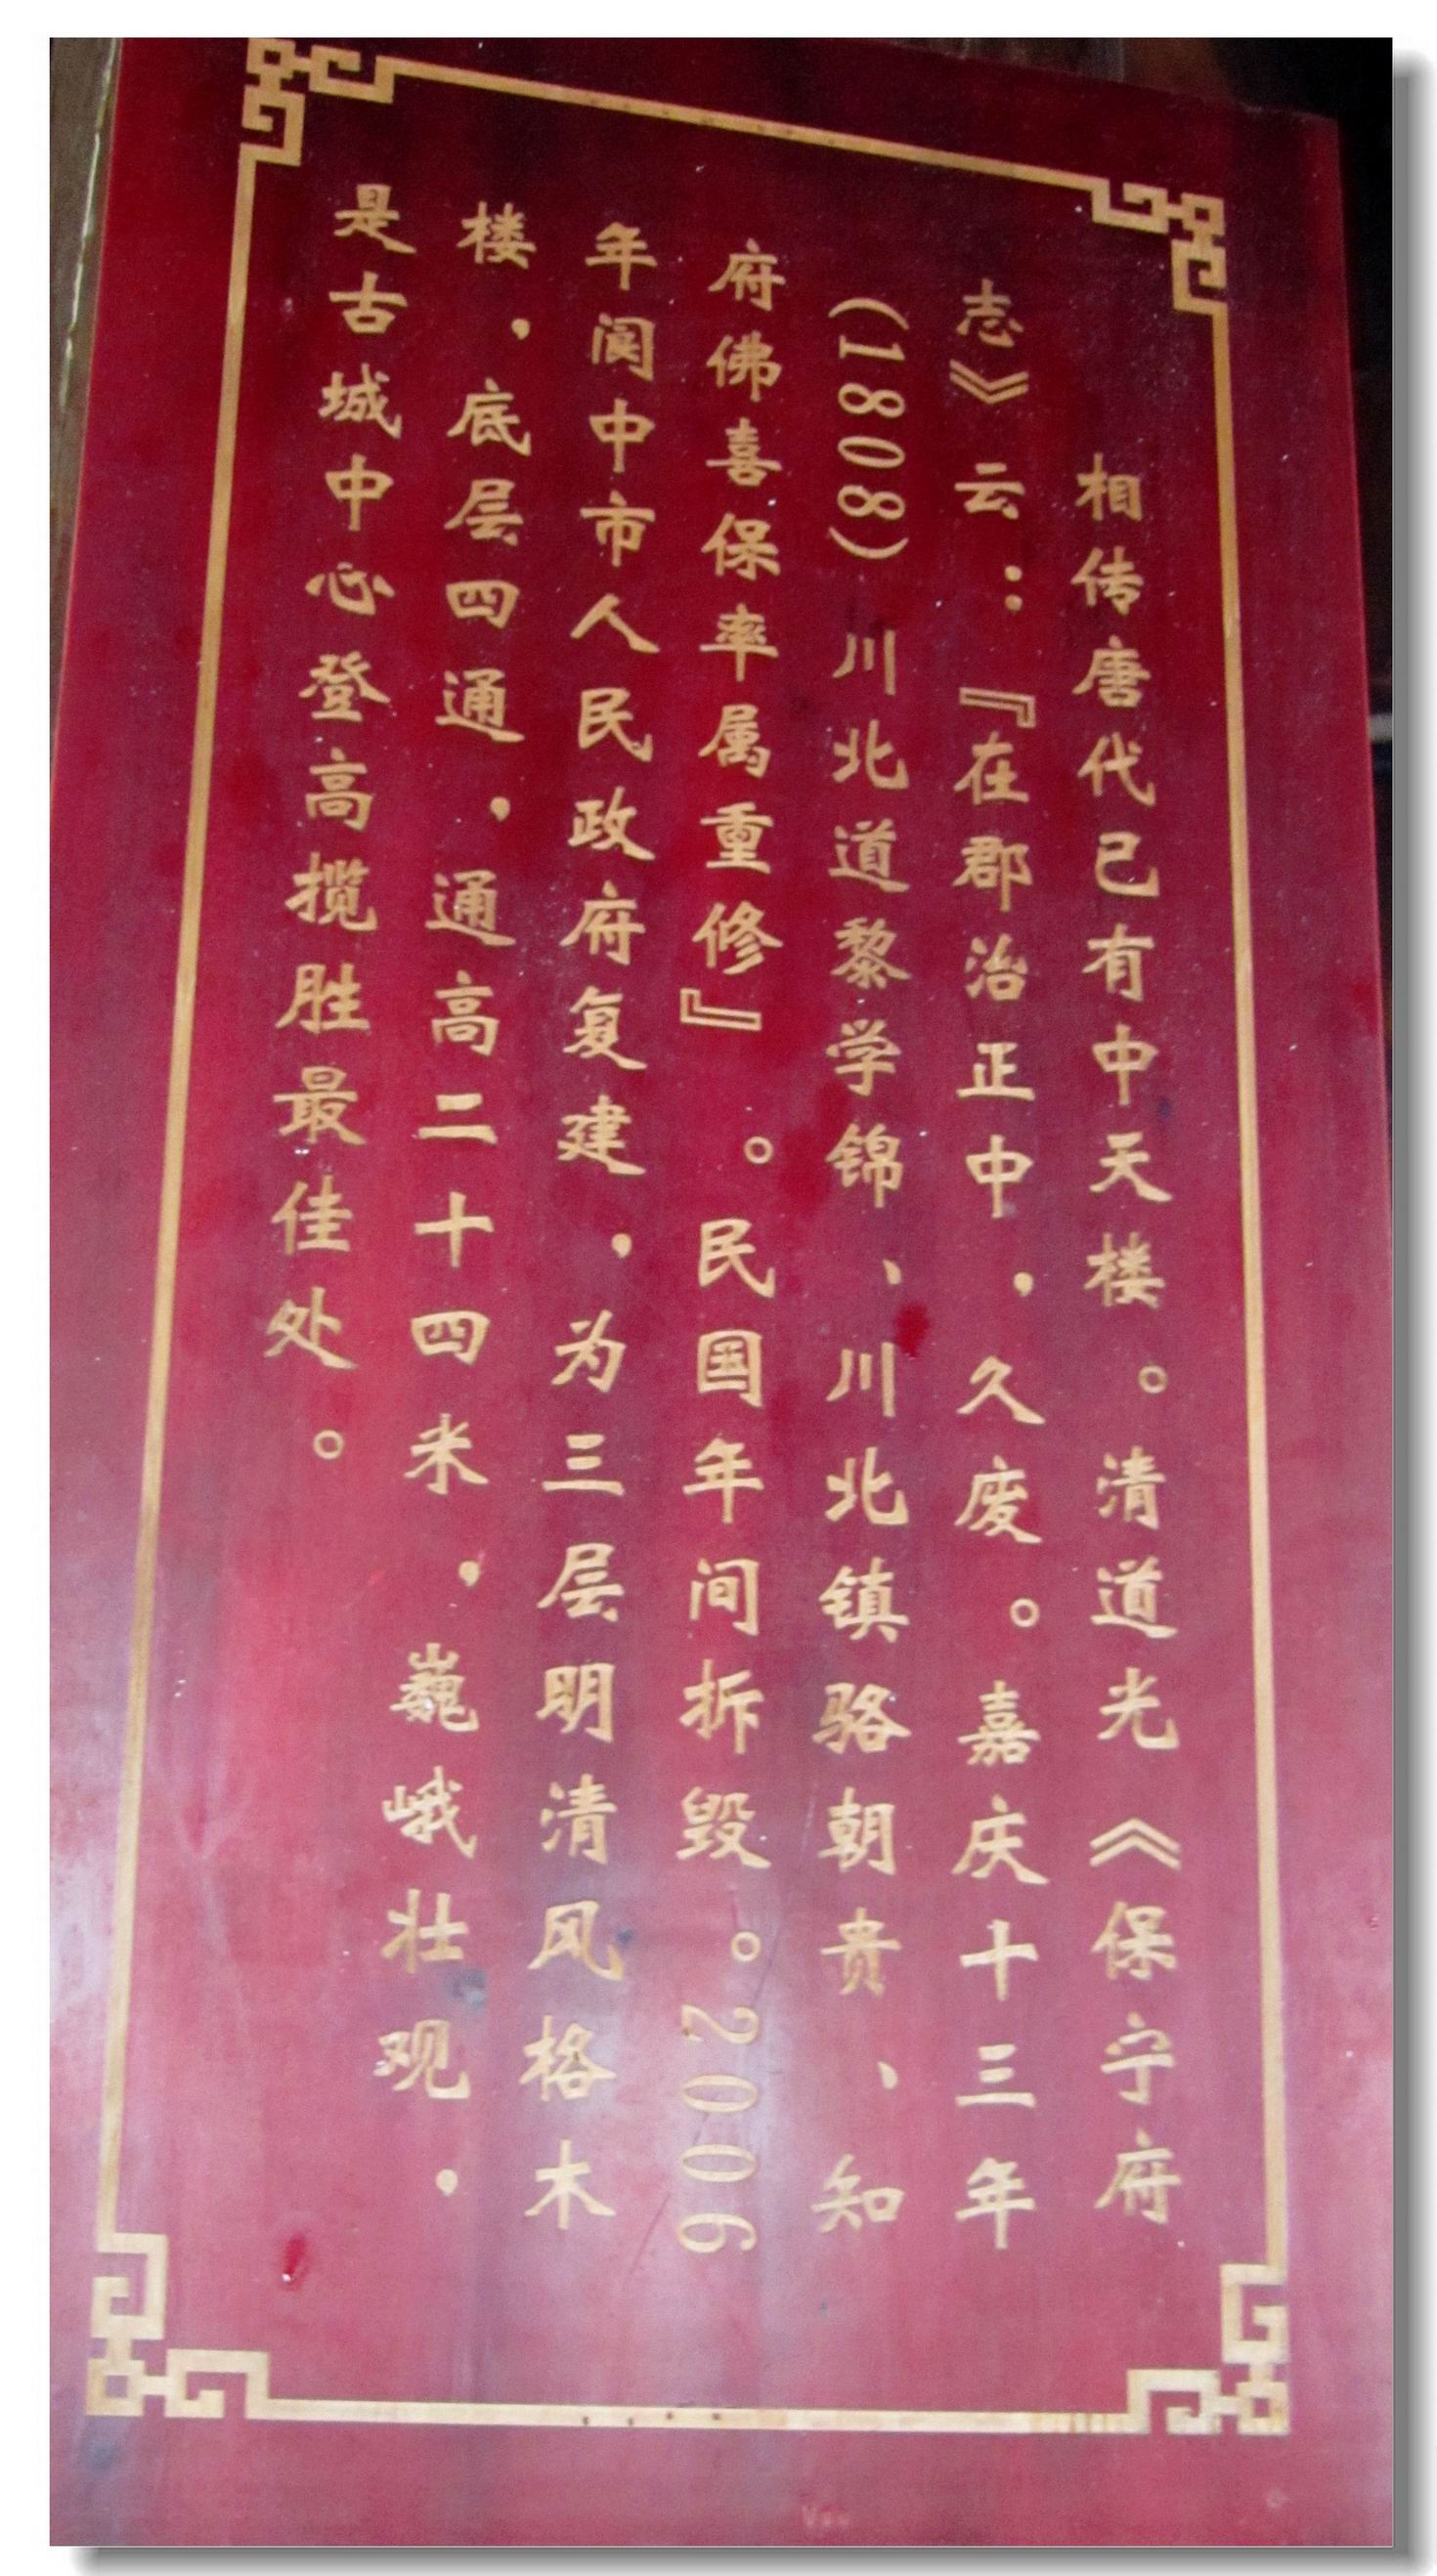 相传唐代已有中天楼。清道光《保宁府
志》云：『在郡治正中，久废。嘉庆十三年
(1808)川北道黎学锦、川北镇骆朝贵、知
府佛喜保率属重修』。民国年间拆毁。2006
年阆中市人民政府复建，为三层明清风格木
楼，底层四通，通高二十四米，巍峨壮观，
是古城中心登高揽胜最佳处。